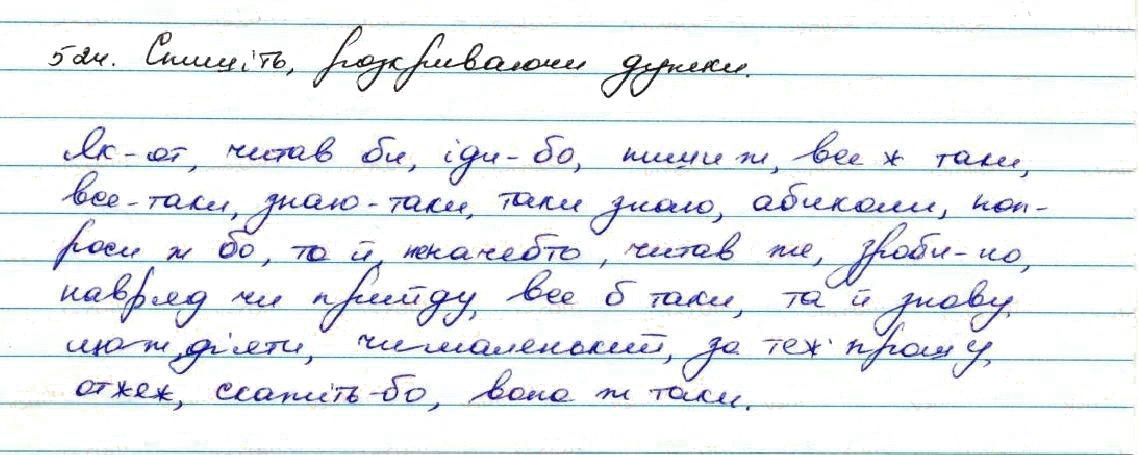 524. Спишіть, розкриваючи дужки.
Як-от, читав би, іди-бо, пиши ж, все ж таки,
все-таки, знаю-таки, таки знаю, абиколи, поп-
роси ж бо, то й, неначебто, читав же, зроби-но,
навряд чи прийду, все б таки, та й знову,
що ж діяти, чималенький, за те ж прошу,
отжеж, скажіть-бо, вона ж таки.